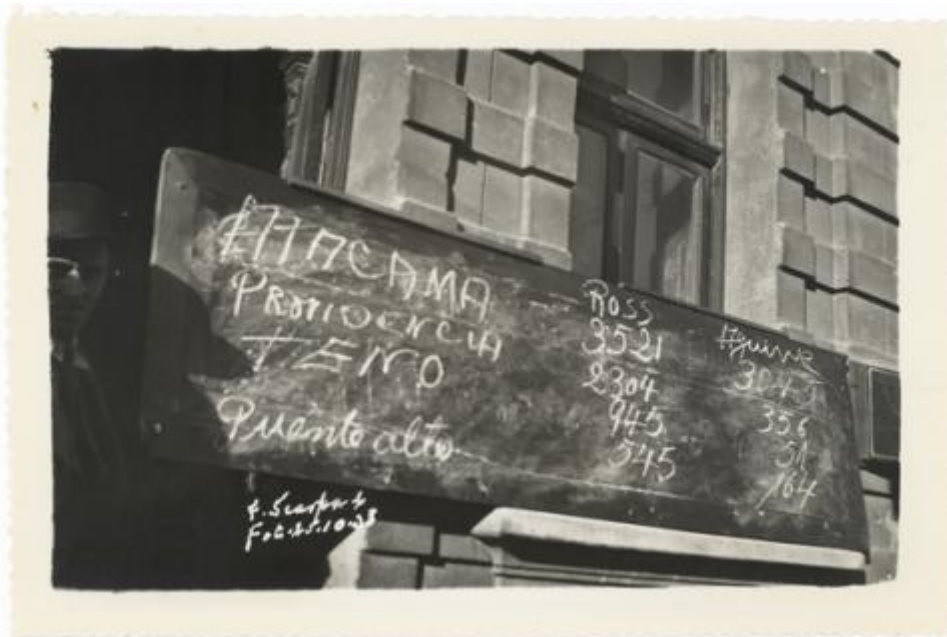 Ross Aguirre
ATACAMA 3521
PROVIDENCIA 2304 356
TENO 945
Puente alto 545 164